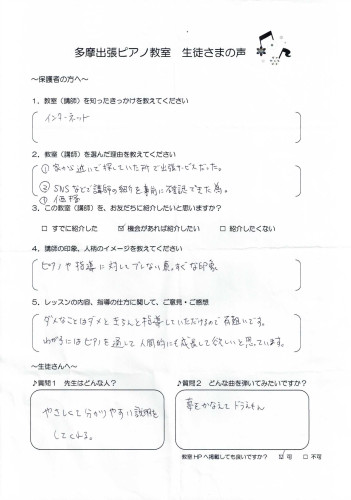 多摩出張ピアノ教室 生徒さまの声
～保護者の方へ～
1、教室（講師）を知ったきっかけを教えてください
インターネット
2、教室（講師）を選んだ理由を教えてください
① 家から近いで探していた所で出張サービスだった。
② SNSなどで講師の紹介を事前に確認できた為。
③ 価格
3、この教室（講師）を、お友だちに紹介したいと思いますか？
□ すでに紹介した ☑ 機会があれば紹介したい □ 紹介したくない
4、講師の印象、人柄のイメージを教えてください
ピアノや指導に対してブレない真っすぐな印象
5、レッスンの内容、指導の仕方に関して、ご意見・ご感想
ダメなことはダメときちんと指導していただけるので有難いです。
にはピアノを通して人間的にも成長して欲しいと思っています。
～生徒さんへ～
♪質問1 先生はどんな人？
やさしくて分かりやすい説明を
してくれる。
♪質問2 どんな曲を弾いてみたいですか？
夢をかなえてドラえもん
教室HPへ掲載しても良いですか？ ☑ 可 □ 不可